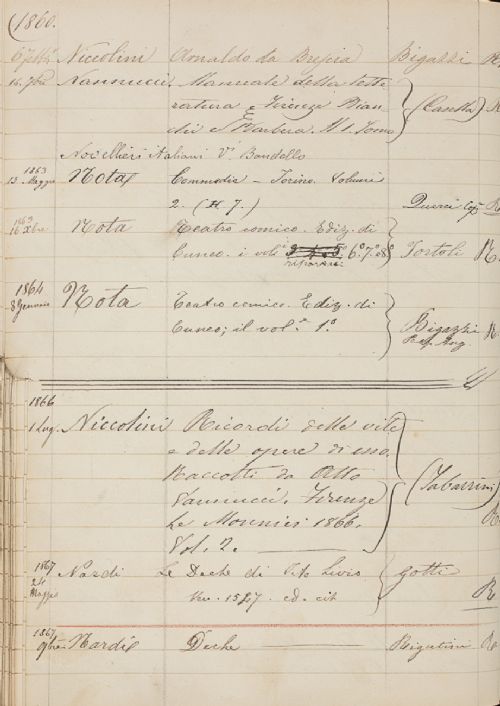 (1860.
6 7bre Niccolini Arnaldo da Brescia Bigazzi R
14. 9bre Nannucci Manuale della lette
ratura, Firenze Bian
chi e Barbèra. Il 1. Tomo (Canella)
Novellieri italiani V. Bandello
1863
13. Maggio Nota Commedie - Torino. Volumi
2. (H. 7.) Querci Cap. R
1863
16 Xbre. Nota Teatro comico. Ediz. di
Cuneo. i voli 3. 4. e 5. 6.° 7.° 8.° Tortoli R.
riportati.
1864
8 Gennaio Nota Teatro comico. Ediz. di
Cuneo; il vol.e 1.° Bigazzi R
1866
1 Lug. Niccolini Ricordi della vita
e delle opere di esso.
Raccolti da Atto
Vannucci. Firenze (Tabarrini)
Le Monnier 1866. R
Vol. 2.
1867
24 Maggo Nardi Le Deche di Tito Livio Gotti
Ven. 1547. ed. cit R
1867
9bre Nardi Deche Rigutini R